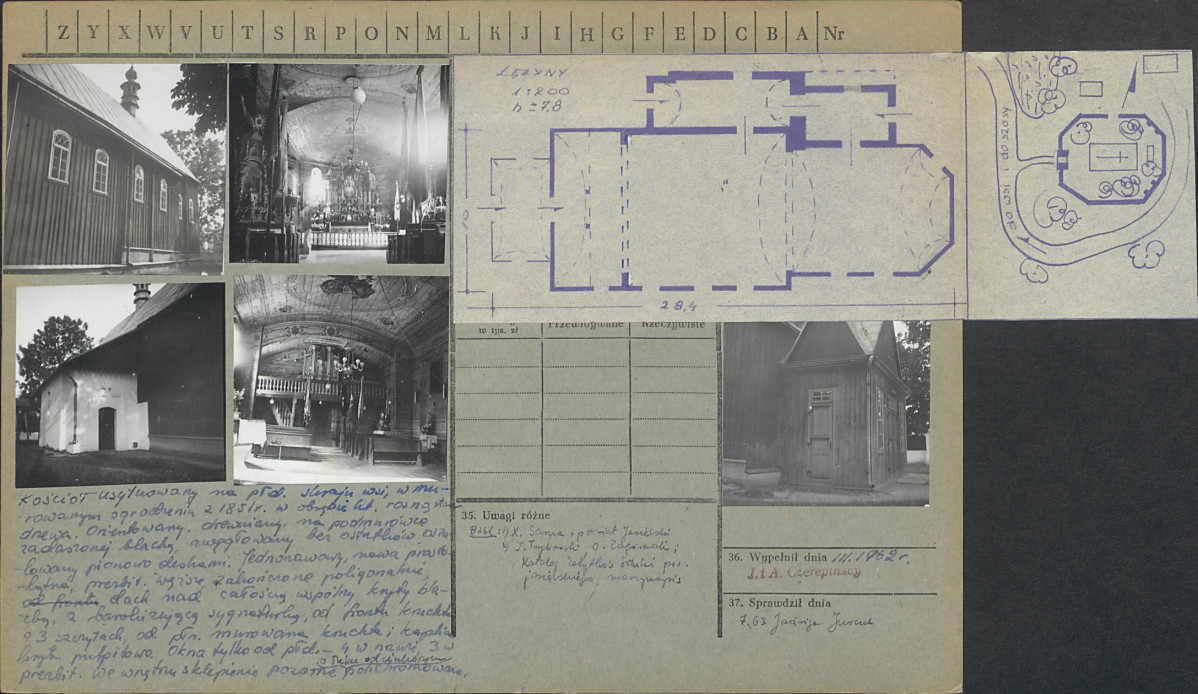 Z Y X W V U T S R P O N M L K J I H G F E D C B A Nr
ŁĘŻYNY
1:200
h = 7,8
28,4
do wsi i do szosy
w tys. zł Przewidywane Rzeczywiste
Kościół usytuowany na płd. skraju wsi, w mu-
rowanym ogrodzeniu z 1851r. w obrębie kt. rosną
drewa. Orientowany, drewniany, na podmurówce
zadaszonej blachą, zwęgłowany bez ostatków
-lowany pionowo deskami. Jednonawowy, nawa prosto-
-kątna, prezbit. węższe zakończone poligonalnie,
od frontu dach nad całością wspólny kryty bla-
chą, z barokizującą sygnaturką, od frontu kruchta
o 3 szczytach, od płn. murowana kruchta i kaplica
kryta pulpitowo. Okna tylko od płd. – 4 w nawie, 3 w
o łuku odcinkowym
prezbit. We wnętrzu sklepienie pozorne polichromowane,
35. Uwagi różne
Bibl: 1) X. Sarna, powiat Jasielski
2) J. Tryborski O. Zagórowski;
Katalog zabytków sztuki pow.
jasielskiego, manuskrypt
36. Wypełnił dnia III.1962 r.
J.i A. Czerepińscy
37. Sprawdził dnia
7.63 Jadwiga